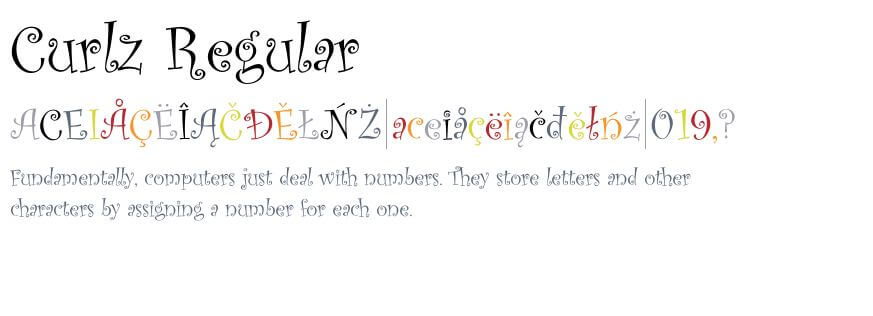 Curlz Regular
ACEIÅÇËÎĄČĐĚŁŃŻ|aceiåçëîąčđěłńż|019,?
Fundamentally, computers just deal with numbers. They store letters and other
characters by assigning a number for each one.